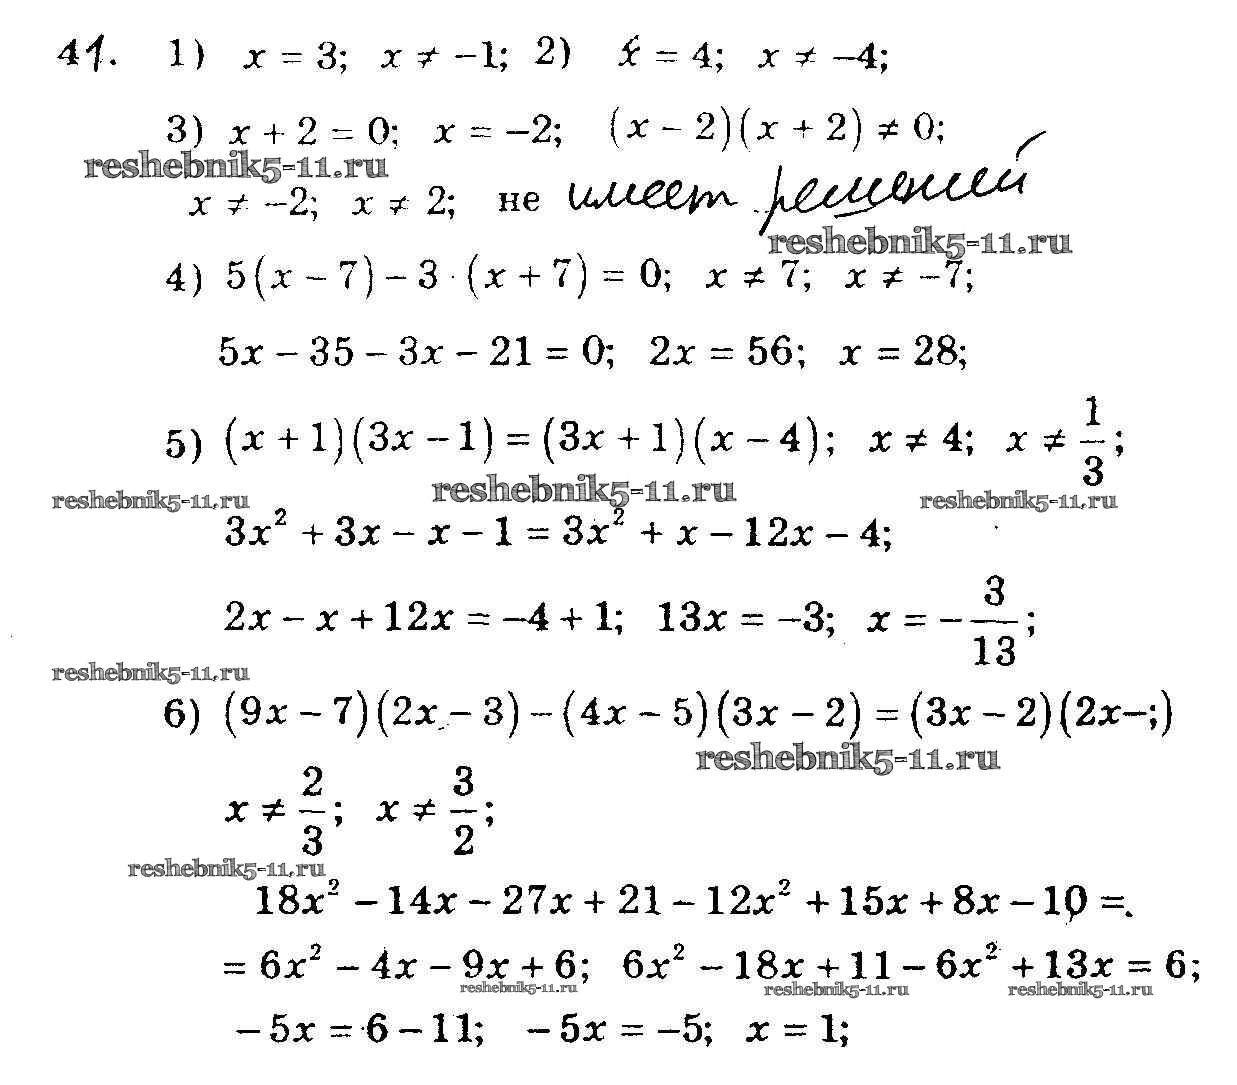 41. 1) x = 3; x ≠ −1; 2) x = 4; x ≠ −4;
3) x + 2 = 0; x = −2; (x − 2)(x + 2) ≠ 0;
reshebnik5-11.ru
x ≠ −2; x ≠ 2; не имеет решений
reshebnik5-11.ru
4) 5(x − 7) − 3 · (x + 7) = 0; x ≠ 7; x ≠ −7;
5x − 35 − 3x − 21 = 0; 2x = 56; x = 28;
5) (x + 1)(3x − 1) = (3x + 1)(x − 4); x ≠ 4; x ≠ 1/3;
reshebnik5-11.ru reshebnik5-11.ru reshebnik5-11.ru
3x² + 3x − x − 1 = 3x² + x − 12x − 4;
2x − x + 12x = −4 + 1; 13x = −3; x = −3/13;
reshebnik5-11.ru
6) (9x − 7)(2x − 3) − (4x − 5)(3x − 2) = (3x − 2)(2x−;)
reshebnik5-11.ru
x ≠ 2/3; x ≠ 3/2;
reshebnik5-11.ru
18x² − 14x − 27x + 21 − 12x² + 15x + 8x − 10 =
= 6x² − 4x − 9x + 6; 6x² − 18x + 11 − 6x² + 13x = 6;
reshebnik5-11.ru reshebnik5-11.ru reshebnik5-11.ru
−5x = 6 − 11; −5x = −5; x = 1;